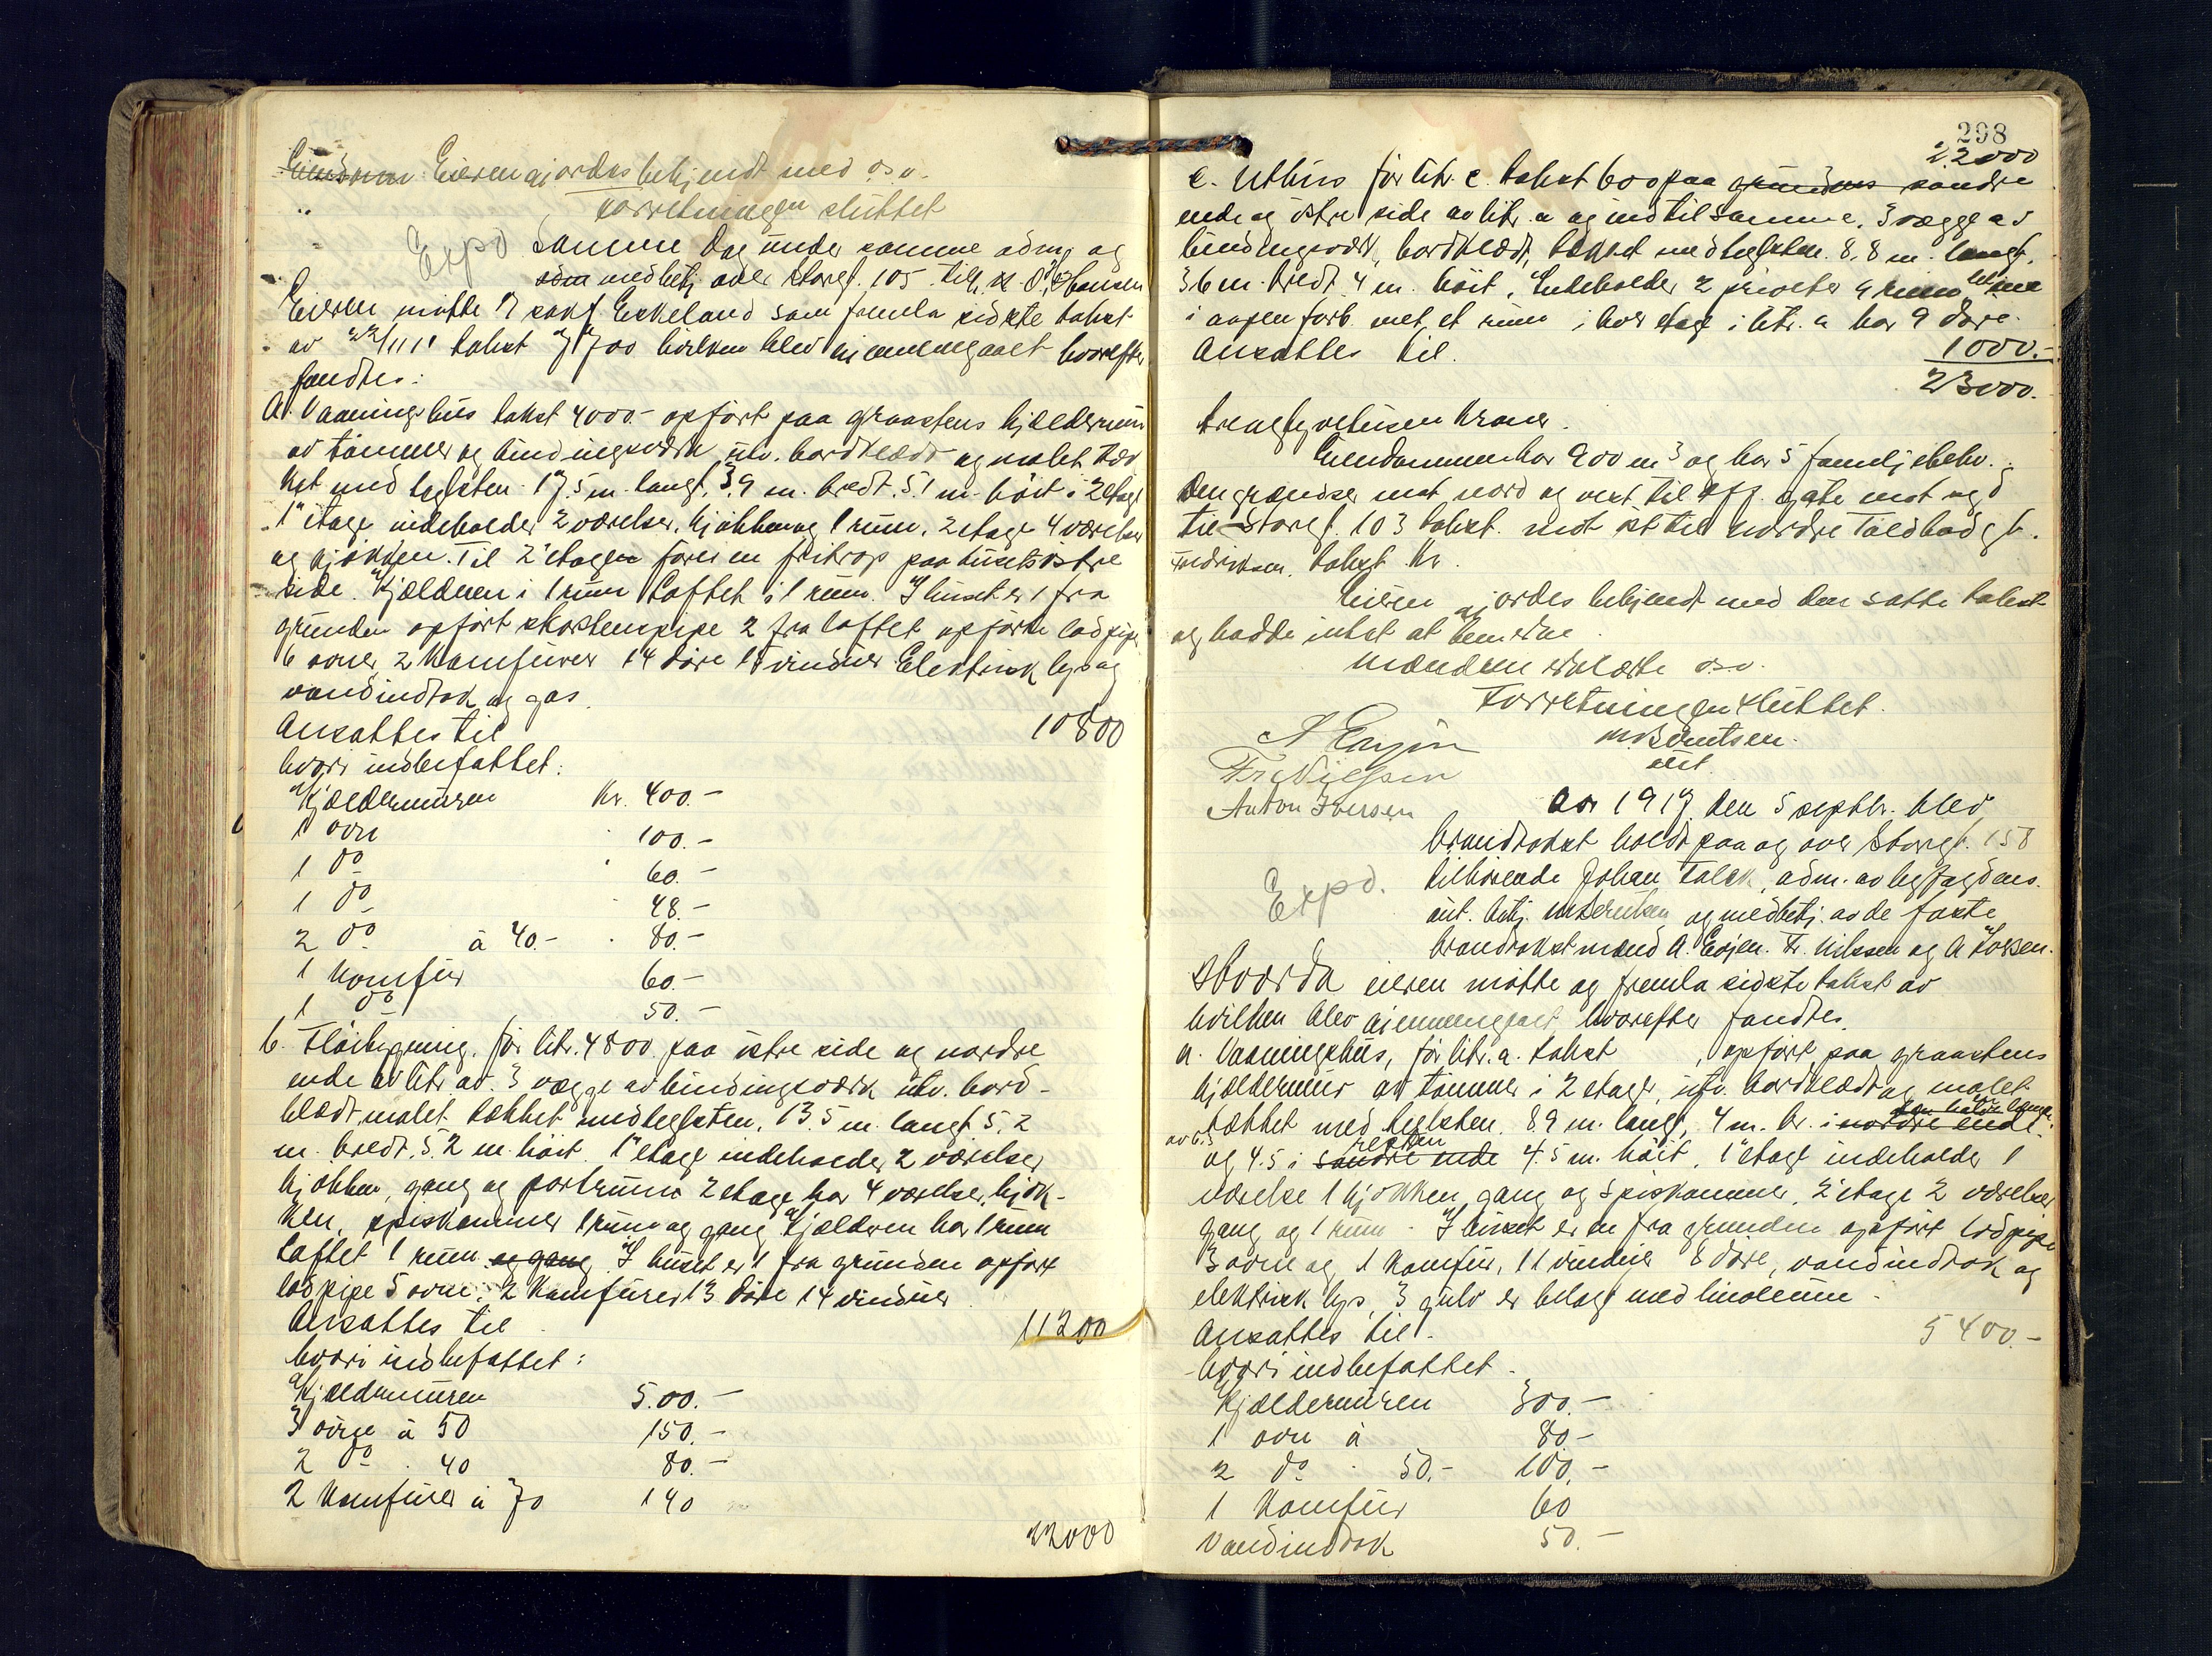 Eieren gjordes bekjendt med osv.
Forretningen sluttet
Expd. Samme dag under samme adm. og
som medbetj. over Storgt. 105 tilh.
Eieren møtte v sakf. Eskeland som fremla sidste takst
av 22/11 11 takst 7700 hvilken blev gjennemgaaet hvorefter
fandtes:
A. Vaaningshus takst 4000.- opført paa graastens kjældermur
av tømmer og bindingsværk utv. bordklædt og malet. Tæk
ket med teglsten. 17.5 m. langt, 3.9 m. bredt. 5.1 m. høit i 2 etager
1ste etage indeholder 2 værelser, kjøkken og 1 rum, 2 etage 4 værelser
og kjøkken. Til 2 etagen fører en fritrap paa husets østre
side. Kjælderen i 1 rum Loftet i 1 rum. I huset er 1 fra
grunden opført skorstenspipe 2 fra loftet opførte lodpipe
6 ovner, 2 Komfurer 14 døre 15 vinduer Elektrisk lys og
vandindtak og gas.
Ansattes til 10800
hvori indbefattet:
Kjældermuren Kr. 400.-
1 ovn 100.-
1 do 60.-
1 do 48.-
2 do à 40.- 80.-
1 Komfur 60.-
1 do 50.-
b. Fløibygning, før litr. 4800 paa østre side og nordre
ende av litr a. 3 vægge av bindingsværk utv. bord-
klædt, malet, tækket med teglsten, 13.5 m. langt 5.2
m. bredt. 5.2 m. høit. 1ste etage indeholder 2 værelser
kjøkken, gang og portrum 2 etage har 4 værelser, kjøk-
ken, spiskammer 1 rum og gang Kjælderen har 1 rum
Loftet 1 rum og gang I huset er 1 fra grunden opført
lodpipe 5 ovne, 2 Komfurer 13 døre 14 vinduer
Ansattes til 11200
hvori indbefattet:
Kjældermuren 500.-
3 ovne à 50 150.-
2 do 40 80.-
2 Komfurer à 70 140
22000
298
22000
c. Uthus før litr. c. takst 600 paa grundens søndre
ende og østre side av litr. a og ind til samme. 3 vægge av
bindingsværk, bordklædt, tækket med teglsten. 8,8 m. langt,
3.6 m. bredt 4 m. høit. Indeholder 2 priveter 4 rum
i aapen forb. met, et rum i hver etage i litr. a har 9 døre.
Ansattes til. 1000.-
23000.
tre og tyve tusen Kroner.
Eiendommen har 900 m3 og har 5 familjebekv.
Den grændser mot nord og vest til off. gate mot syd
til Storgt. 103 takst. mot øst til Nordre Toldbodgt.
takst Kr.
Eieren gjordes bekjendt med den satte takst
og hadde intet at bemerke.
Mændene erklærte osv.
Forretningen sluttet.
A Evjen M Berntsen
Fr. Nilssen aut.
Anton Iversen Aar 1917 den 5 septbr. blev
brandtakst holdt paa og over Storgt. 158
Expd. tilhørende Johan Falck, adm. av byfogdens
aut. btj. M Berntsen og medbetj. av de faste
brandtakstmænd A. Evjen. Fr. Nilssen og A Iversen.
Hvorda eieren møtte og fremla sidste takst av
hvilken blev gjennemgaaet hvorefter fandtes.
a. Vaaningshus, før litr. a. takst , opført paa graastens
kjældermur av tømmer i 2 etager, utv. bordklædt og malet
tækket med teglsten. 8.9 m. langt, 4 m. br. i nordre ende den halve længde
og 4.5 i søndre ende resten 4.5 m. høit. 1ste etage indeholder 1
værelse 1 kjøkken, gang og spiskammer. 2 etage 2 værelser
gang og 1 rum. I huset er en fra grunden opført lodpipe
3 ovne og 1 Komfur, 11 vinduer 8 døre, vandindtak og
elektrisk lys, 3 gulv er belagt med linoleum.
Ansattes til. 5400.-
hvori indbefattet.
Kjældermuren 300.-
1 ovn à 80.-
2 do 50.- 100.-
1 Komfur 60
Vandindtak 50.-